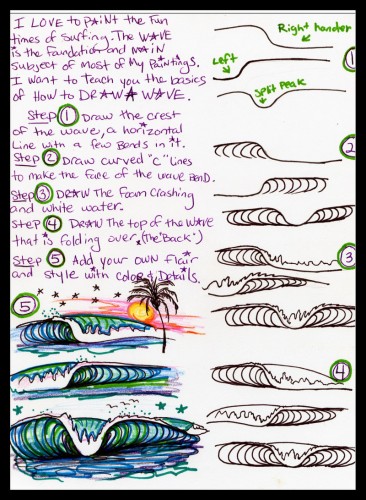 I LOVE to PAiNt the Fun
times of Surfing. The WAVE
is the Foundation and MAiN
subject of most of My Paintings.
I want to Teach you the basics
of How to DRAW A WAVE.
Step 1 Draw the crest
of the wave, a horizontal
Line with a few Bends in it.
Step 2 Draw curved "C" Lines
to make the face of the wave BenD.
Step 3 DRAW The Foam Crashing
and white water.
Step 4 DRAW The top of the WAVE
that is folding over (The "Back")
Step 5 Add your own flair
and style with color & Details.
Right hander
1
Left
Split Peak
2
3
4
5